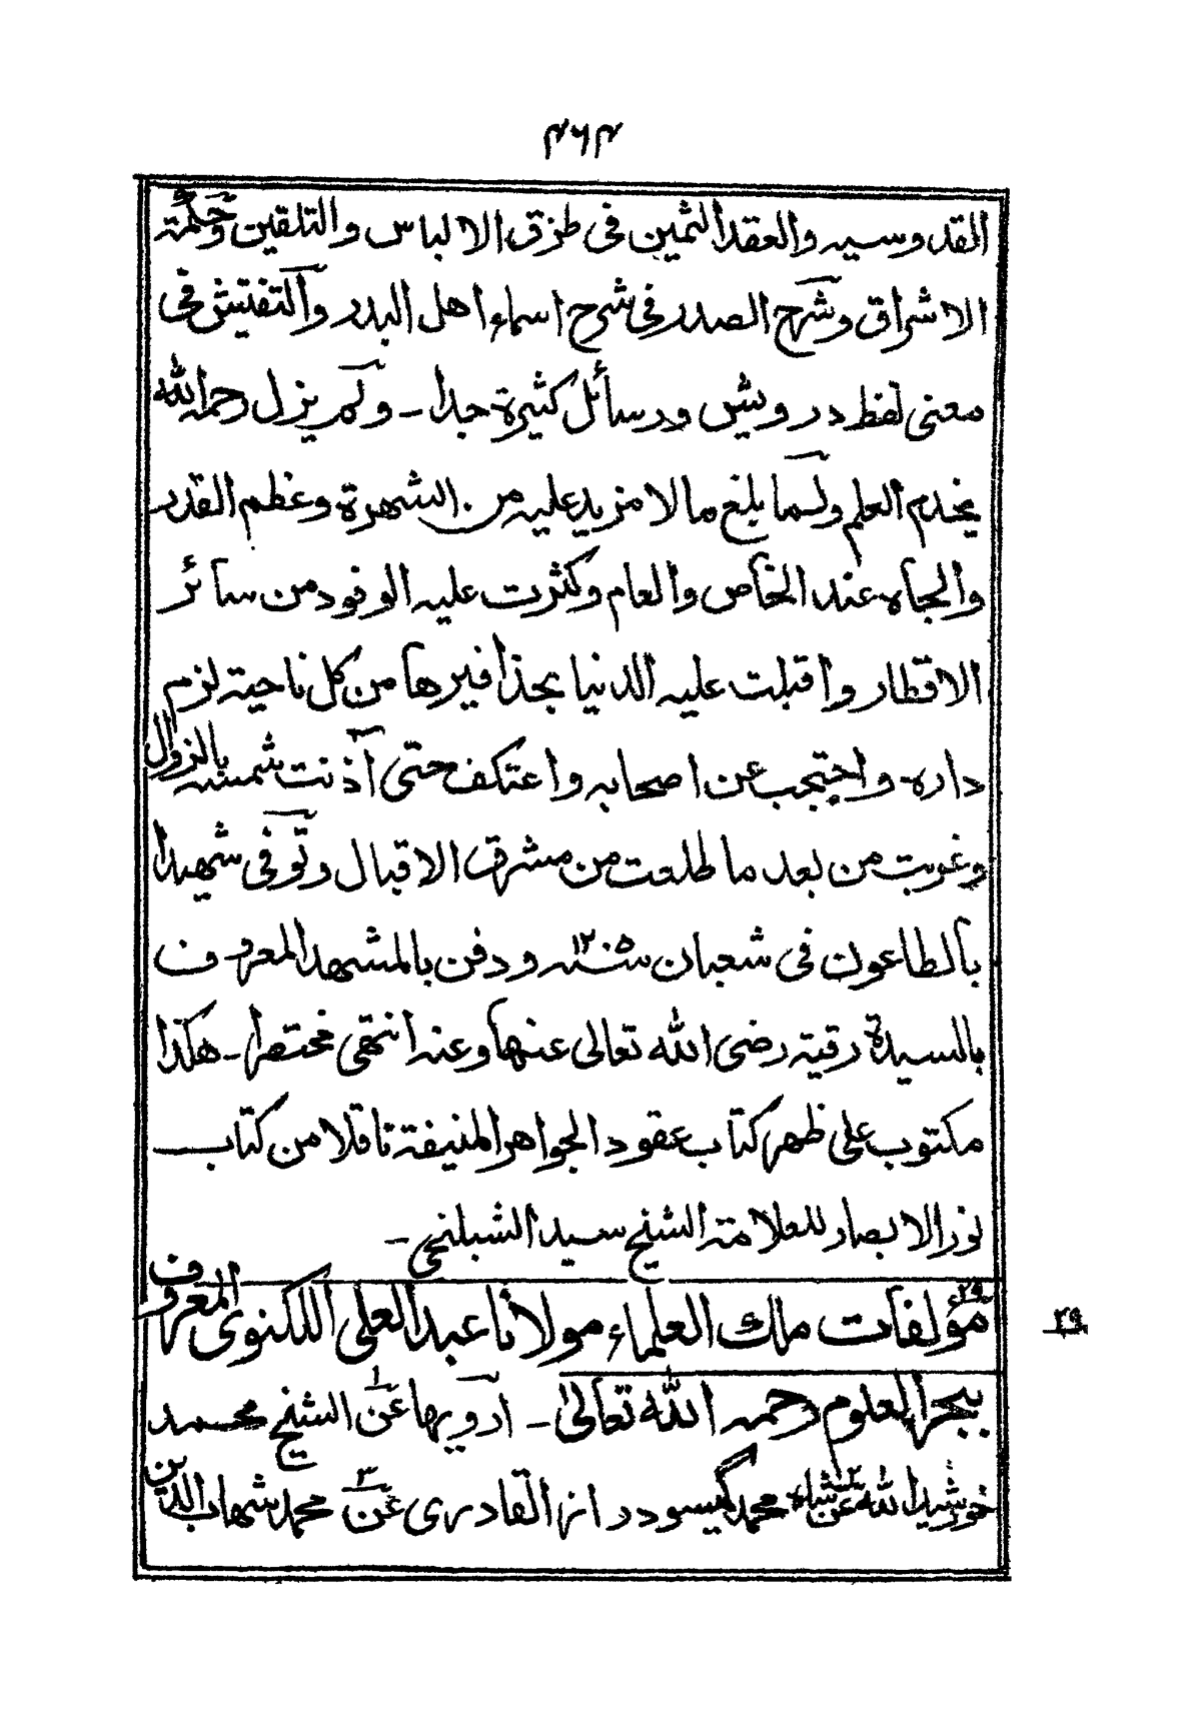 ٤٦٤
القدوسيه والعقد الثمين فى طرق الالباس والتلقين وحكمة
الاشراق وشرح الصدر فى شرح اسماء اهل البدر والتفتيش فى
معنى لفظ درويش ورسائل كثيرة جدا - ولم يزل رحمه الله
يخدم العلم ولما بلغ ما لا مزيد عليه من الشهرة وعظم القدر
والجاه عند الخاص والعام وكثرت عليه الوفود من سائر
الاقطار واقبلت عليه الدنيا بحذافيرها من كل ناحية لزم
داره واحتجب عن اصحابه واعتكف حتى آذنت شمسه بالزوال
وغربت من بعد ما طلعت من مشرق الاقبال وتوفى شهيدا
بالطاعون فى شعبان سنه ١٢٠٥ ودفن بالمشهد المعروف
بالسيدة رقية رضى الله تعالى عنها وعنه انتهى مختصرا - هكذا
مكتوب على ظهر كتاب عقود الجواهر المنيفة ناقلا من كتاب
نور الابصار للعلامة الشيخ سيد الشبلنجى -
٢٩ مؤلفات ملك العلماء مولانا عبد العلى اللكنوى المعروف
٢٩
ببحر العلوم رحمه الله تعالى - ارويها عن ١ الشيخ محمد
خورشيد الله عن ٢ شاه محمد گيسودراز القادرى عن ٣ محمد شهاب الدين